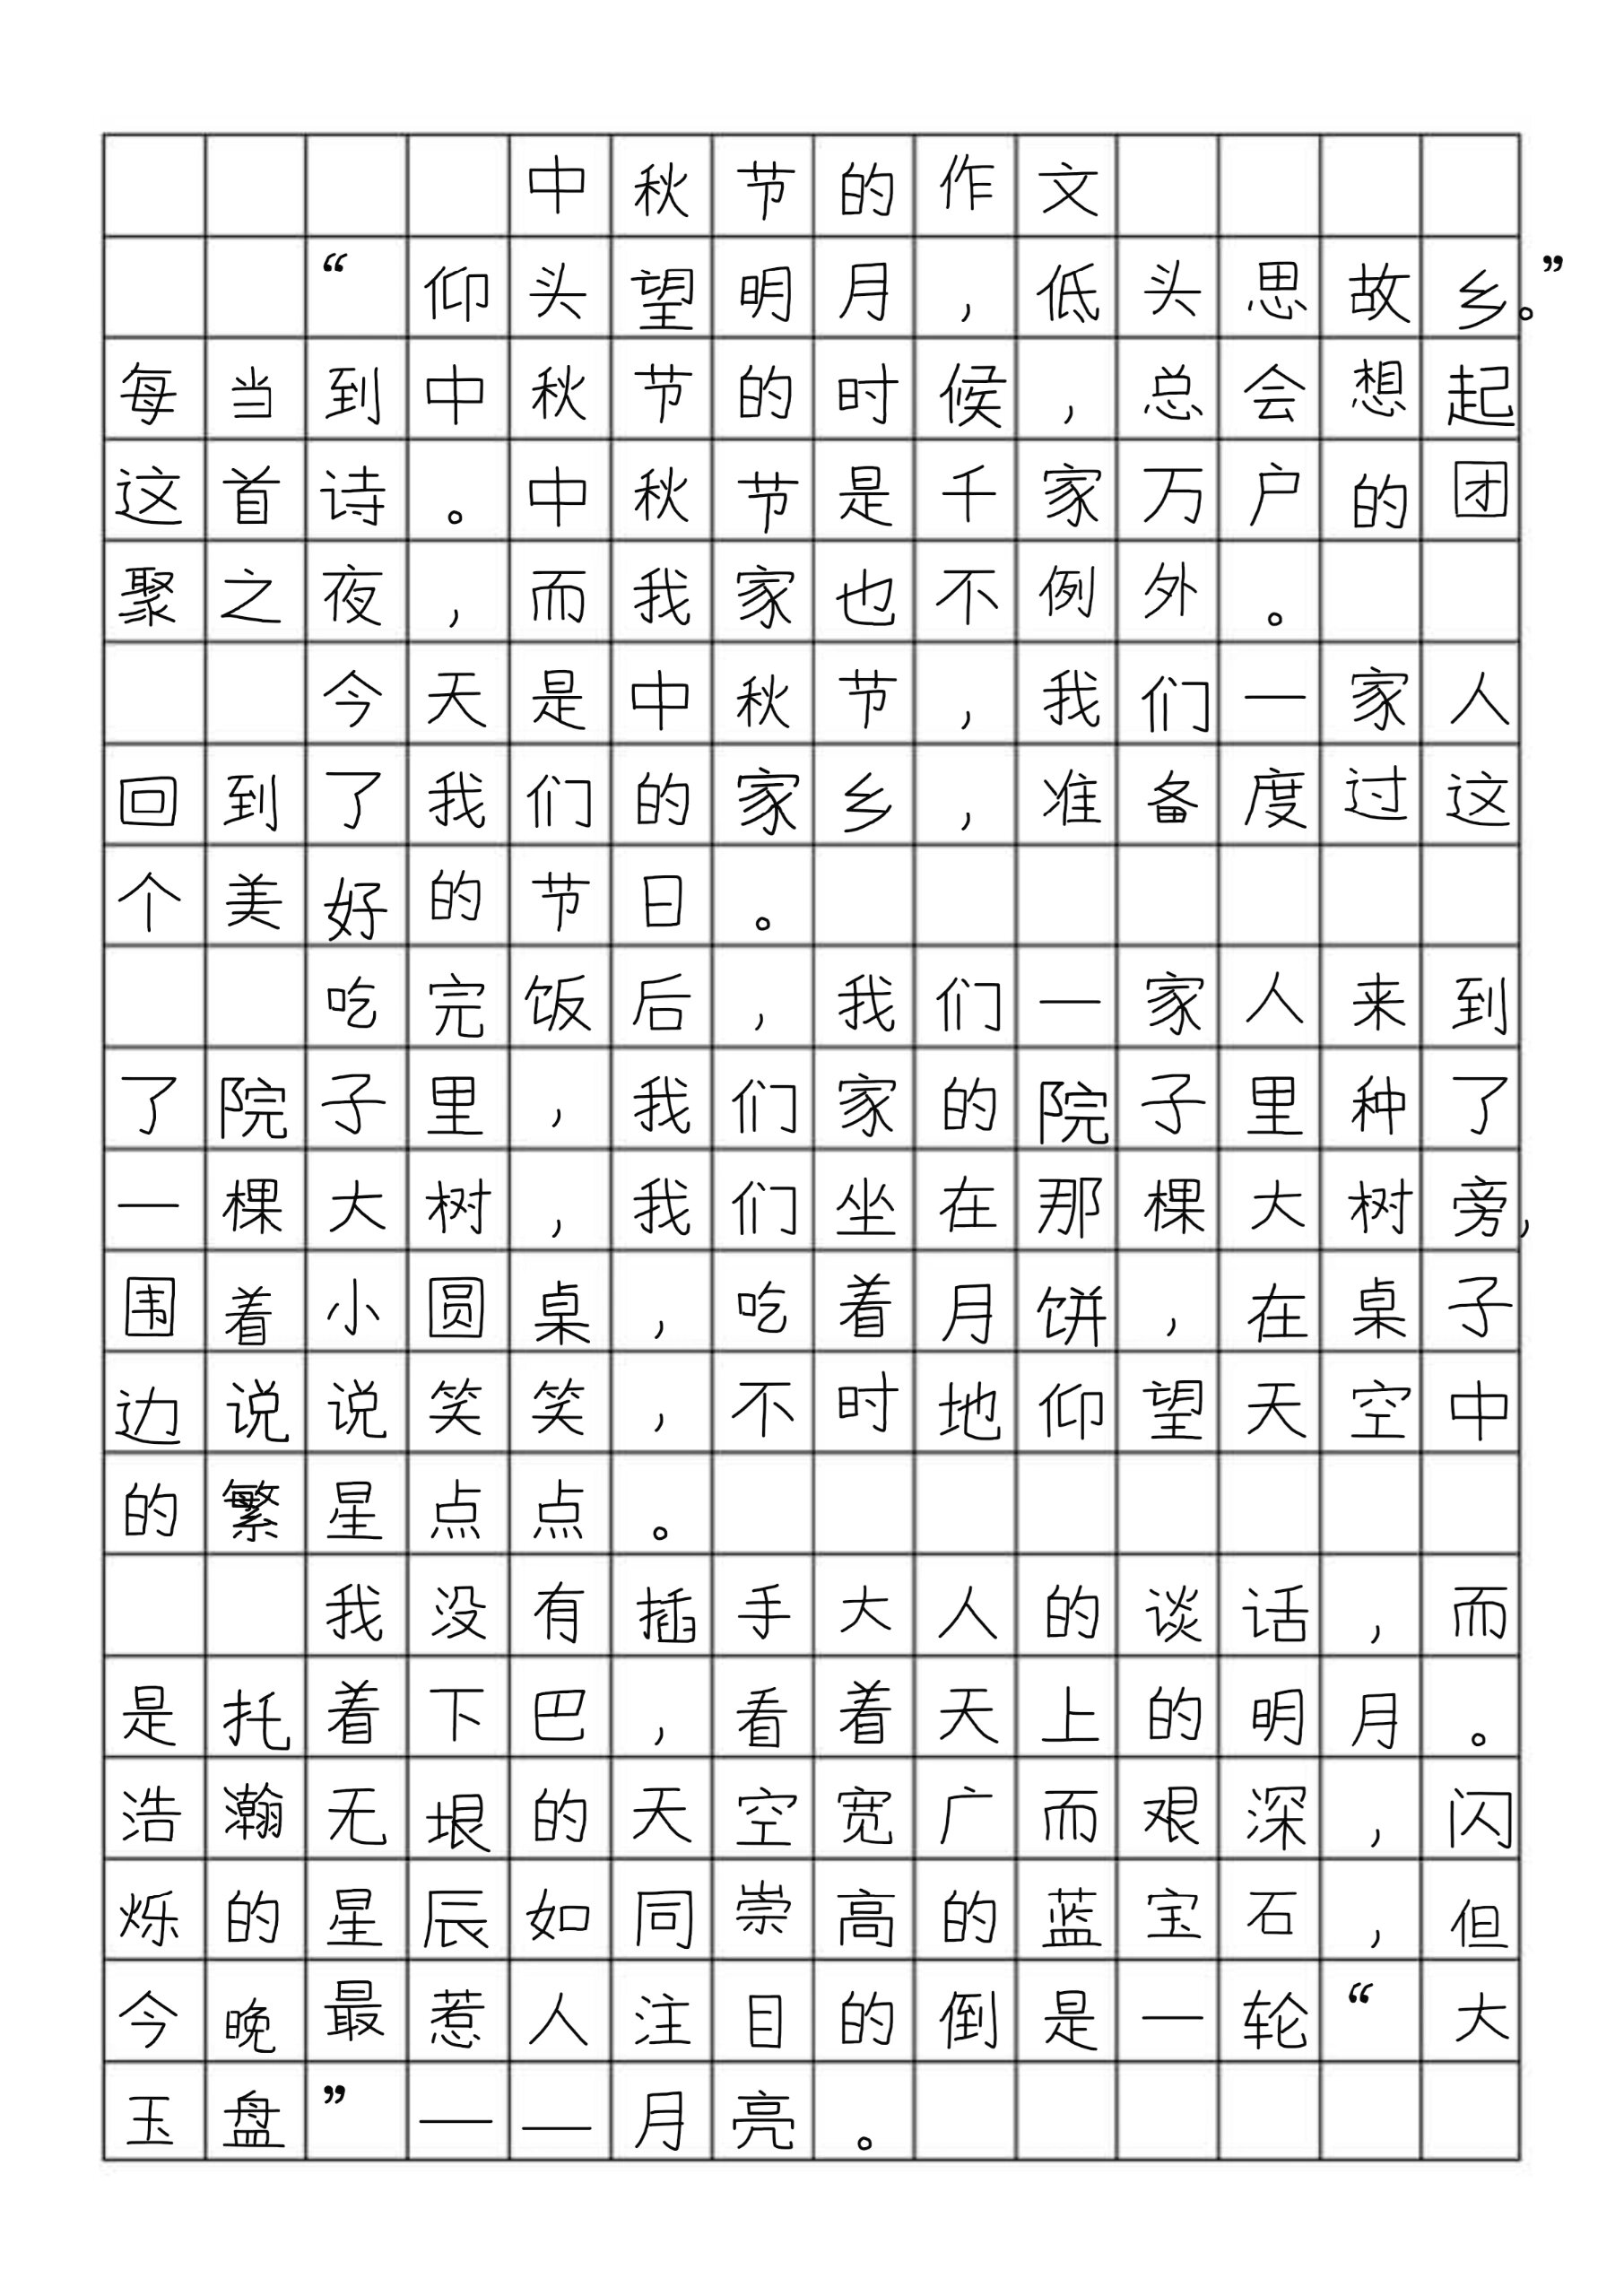 中秋节的作文
“仰头望明月，低头思故乡。”
每当到中秋节的时候，总会想起
这首诗。中秋节是千家万户的团
聚之夜，而我家也不例外。
今天是中秋节，我们一家人
回到了我们的家乡，准备度过这
个美好的节日。
吃完饭后，我们一家人来到
了院子里，我们家的院子里种了
一棵大树，我们坐在那棵大树旁，
围着小圆桌，吃着月饼，在桌子
边说说笑笑，不时地仰望天空中
的繁星点点。
我没有插手大人的谈话，而
是托着下巴，看着天上的明月。
浩瀚无垠的天空宽广而艰深，闪
烁的星辰如同崇高的蓝宝石，但
今晚最惹人注目的倒是一轮“大
玉盘”——月亮。